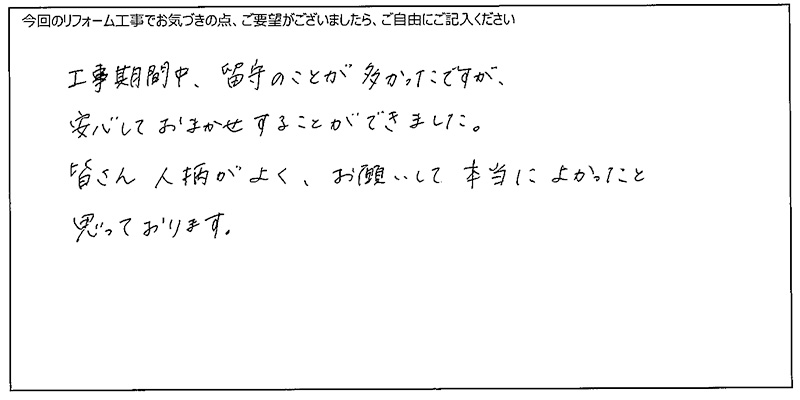 今回のリフォーム工事でお気づきの点、ご要望がございましたら、ご自由にご記入ください
工事期間中、留守のことが多かったですが、
安心しておまかせすることができました。
皆さん人柄がよく、お願いして本当によかったと
思っております。